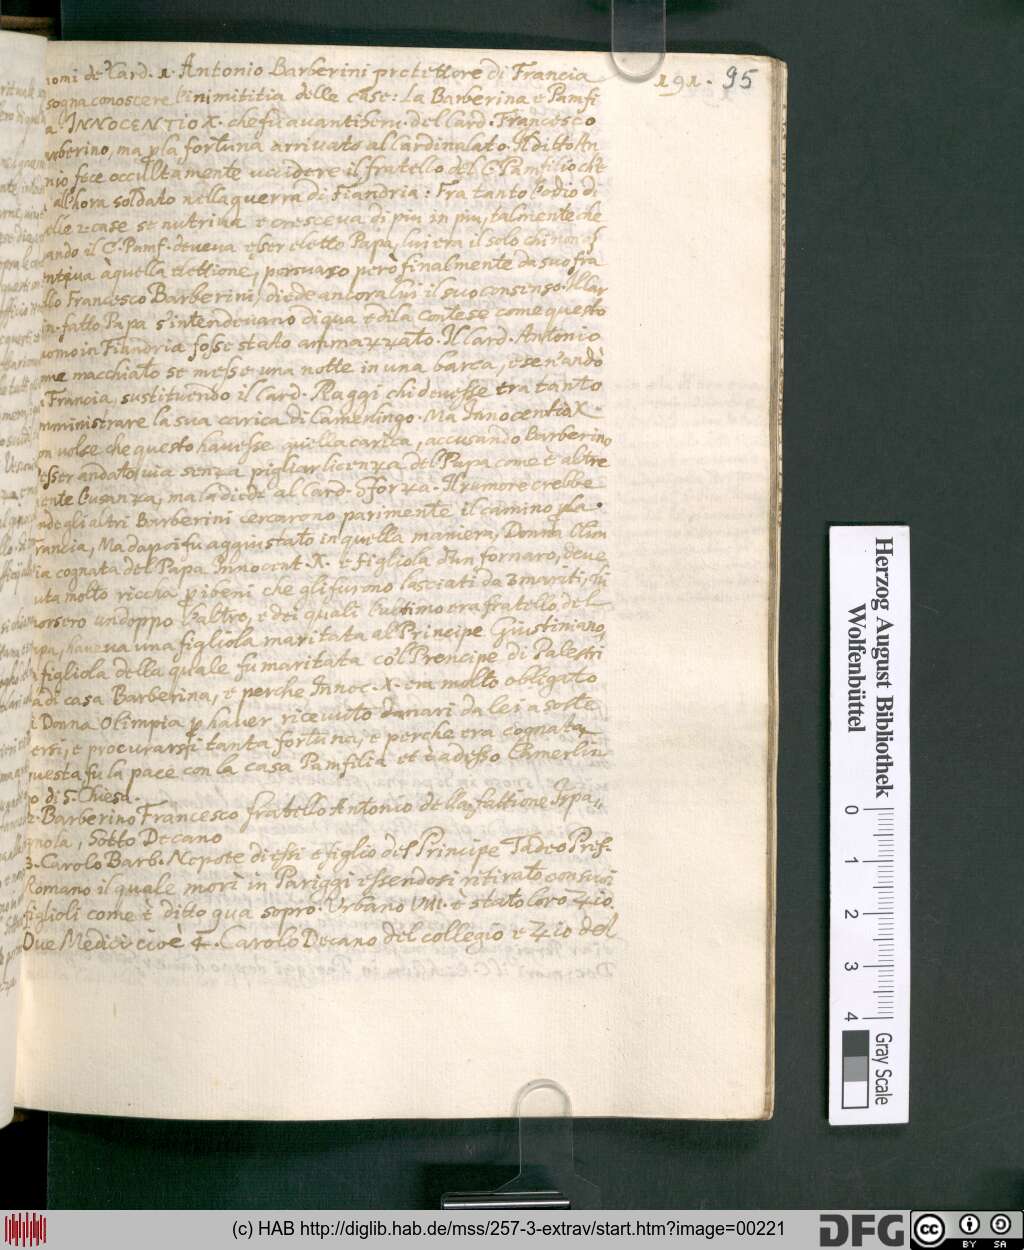 191. 95
nomi de Card. 1. Antonio Barberini protettore di Francia
sogna conoscere l'inimititia delle case: La Barberina e Pamfi
a INNOCENTIO X. che fu avanti Serv. del Card. Francesco
arberino, ma p la fortuna arrivato al Cardinalato. Il ditto An
nio fece occultamente uccidere il fratello del C. Pamfilio che
all'hora soldato nella guerra di Fiandria: Fra tanto l'odio di
elle 2 case se nutriva e cresceva di piu in piu, talmente che
uando il C. Pamf. deveva esser eletto Papa, lui era il solo chi non
entiva à quella elettione, persuaso però finalmente da suo fra
llo Francesco Barberini, diede ancora lui il suo consenso. Il Car
in. fatto Papa s'intendevano di qua e di la contese come questo
uomo in Fiandria fosse stato ammazzato. Il Card. Antonio
me macchiato se messe una notte in una barca, e se n'andò
Francia, sustituendo il Card. Raggi chi devesse tra tanto
mministrare la sua carica di Camerlingo. Ma Innocentio X.
on volse che questo havesse quella carica, accusando Barberino
esser andato via senza pigliar licenza del Papa come è altre
ente l'usanza, ma la diede al Card. Sforza. Il rumore crebbe
nde gli altri Barberini cercarono parimente il camino p la
Francia, Ma dapoi fu aggiustato in quella maniera, Donna Olim
ia cognata del Papa Innocent. X. e figliola d'un fornaro, deve
uta molto riccha p i beni che gli furono lasciati da 3 mariti,
morsero un doppo l'altro, e dei quali l'ultimo era fratello del
apa, haveva una figliola maritata al Principe Giustiniano,
figliola della quale fu maritata co'l Prencipe di Palestri
a di casa Barberina, e perche Innoc. X. era molto obligato
Donna Olimpia p haver ricevuto danari da lei a soste
ersi, e procurarsi tanta fortuna, e perche era cognata,
questa fu la pace con la casa Pamfilia et è adesso Camerlin
o di S. Chiesa.
2. Barberino Francesco fratello Antonio della fattione Ispa,,
gnola, Sotto Decano
3. Carolo Barb. Nepote di essi e figlio del Principe Tadeo Pref.
Romano il quale morì in Pariggi essendosi ritirato con suoi
figlioli come è ditto qua sopra. Urbano VIII. e stato loro Zio.
Due Medici cioè 4. Carolo Decano del collegio e Zio del
Herzog August Bibliothek
Wolfenbüttel
0 1 2 3 4
Gray Scale
(c) HAB http://diglib.hab.de/mss/257-3-extrav/start.htm?image=00221
DFG
cc BY SA